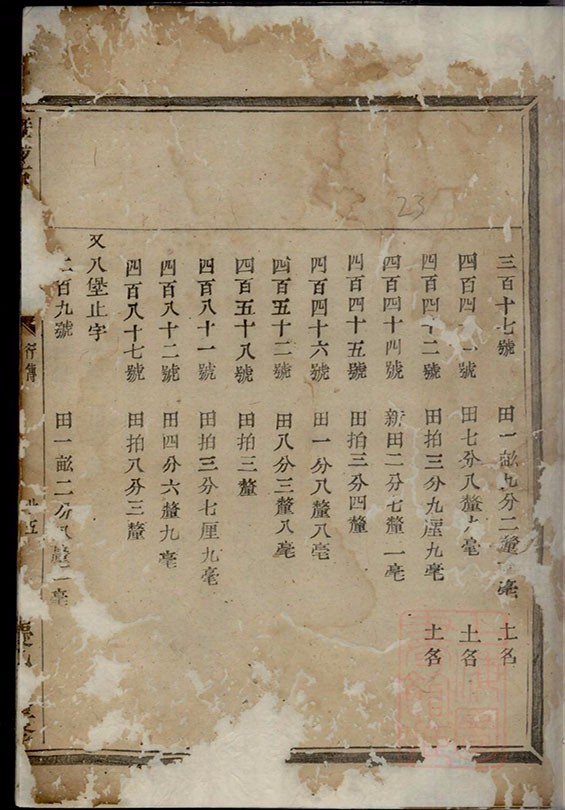 三百十七號 田一畝九分二釐 毫 土名
四百四 一號 田七分八釐 毫 土名
四百四十二號 田拍三分九厘九毫 土名
四百四十四號 新田二分七釐一毫
四百四十五號 田拍三分四釐
四百四十六號 田一分八釐八毫
四百五十二號 田八分三釐八毫
四百五十八號 田拍三釐
四百八十一號 田拍三分七厘九毫
四百八十二號 田四分六釐九毫
四百八十七號 田拍八分三釐
又八堡止字
二百九號 田一畝二分八釐二毫
行傳
廿五
23